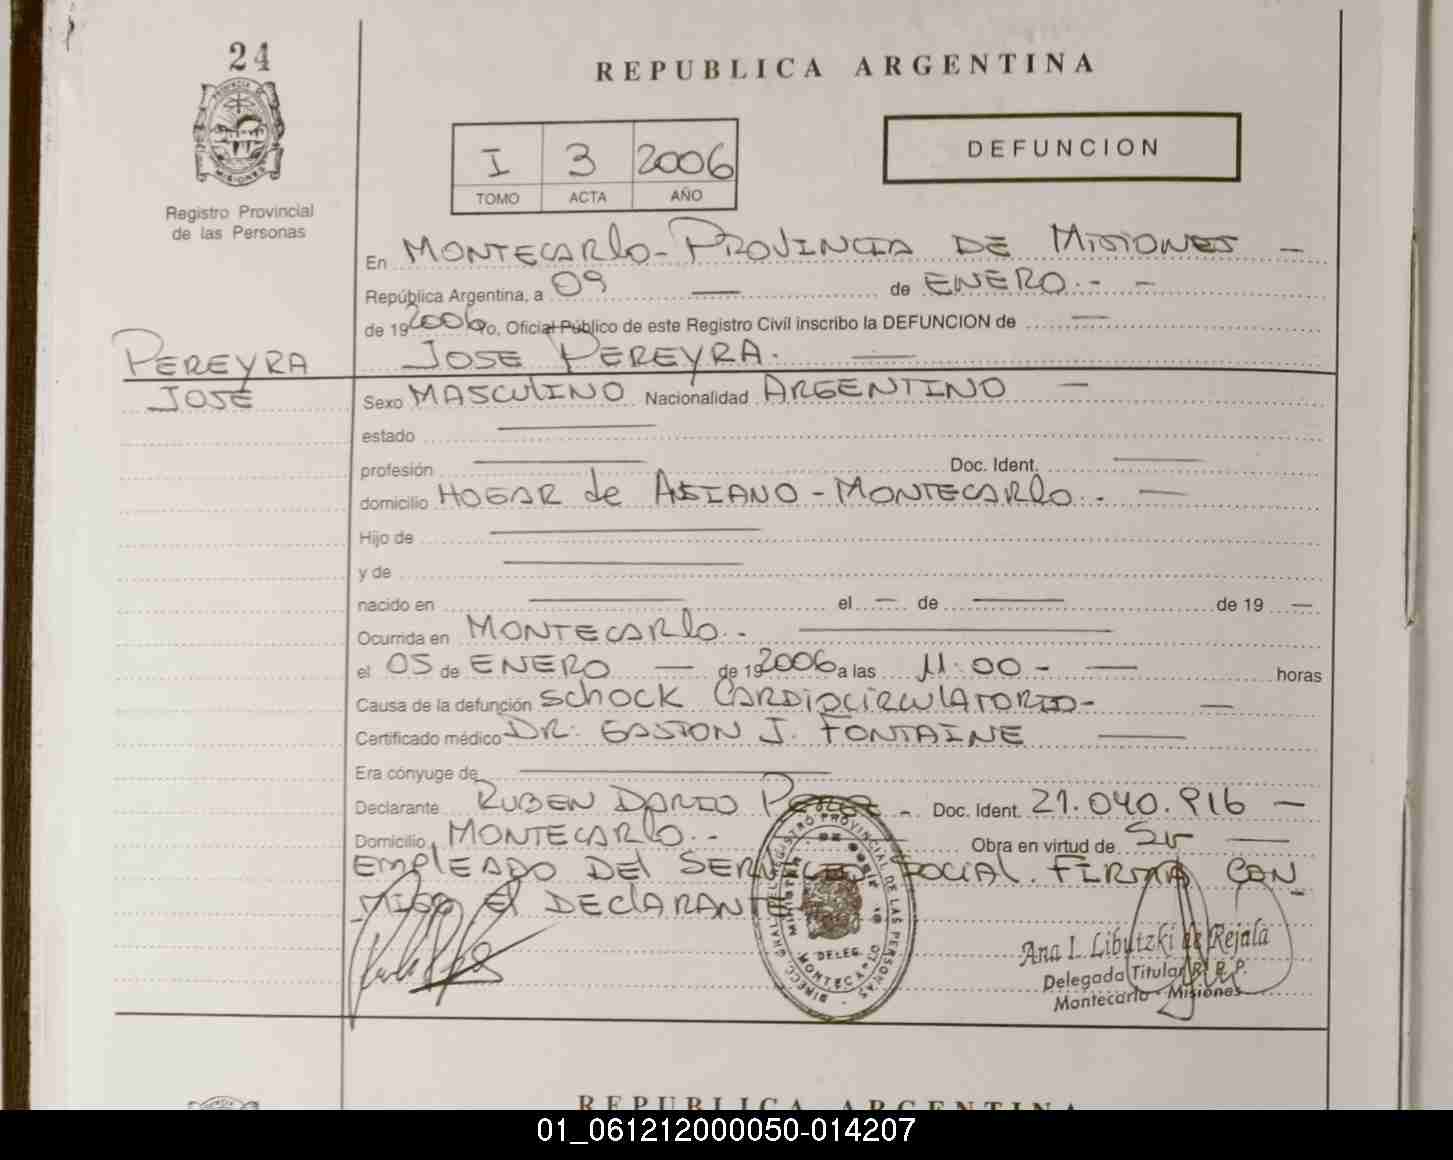 24
REPUBLICA ARGENTINA
I 3 2006
TOMO ACTA AÑO
DEFUNCION
Registro Provincial
de las Personas
En MONTECARLO - PROVINCIA DE MISIONES -
República Argentina, a 09 — de ENERO. - -
de 19 2006 Yo, Oficial Público de este Registro Civil inscribo la DEFUNCION de —
JOSE PEREYRA. —
PEREYRA
JOSÉ
Sexo MASCULINO Nacionalidad ARGENTINO —
estado —
profesión — Doc. Ident. —
domicilio HOGAR de ANSIANO - MONTECARLO. - —
Hijo de —
y de —
nacido en — el — de — de 19 —
Ocurrida en MONTECARLO. - —
el 05 de ENERO — de 19 2006 a las 11:00 - — horas
Causa de la defunción SCHOCK CARDIOCIRCULATORIO - —
Certificado médico DR. GASTON J. FONTAINE —
Era cónyuge de —
Declarante RUBEN DARIO - Doc. Ident. 21.040.916 —
Domicilio MONTECARLO. - Obra en virtud de SU —
EMPLEADO DEL SERVICIO SOCIAL. FIRMA CON_
MIGO El DECLARANTE
DIRECC. GRAL. DEL REGISTRO PROVINCIAL DE LAS PERSONAS
DELEG.
MONTECARLO
Ana I. Libutzki de Rejala
Delegada Titular R. P. P.
Montecarlo - Misiones
REPUBLICA ARGENTINA
01_061212000050-014207